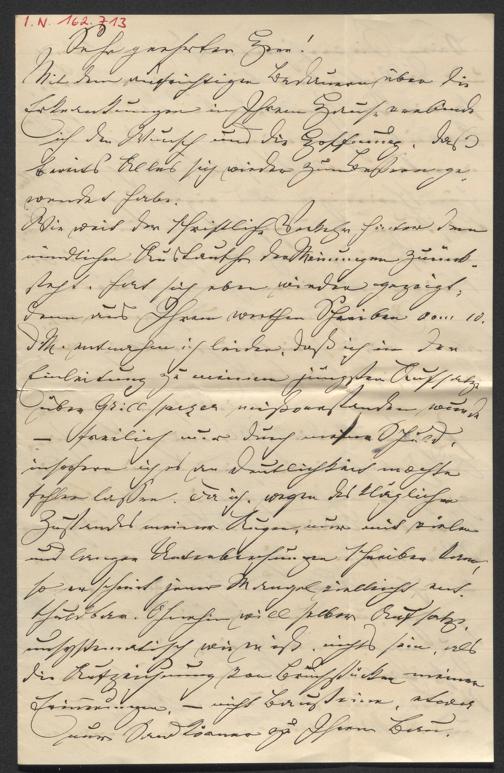 I. N. 162.713
Sehr geehrter Herr!
Mit dem aufrichtigen Bedauern über die
Erkrankungen in Ihrem Hause verbinde
ich den Wunsch und die Hoffnung, daß
bereits Alles sich wieder zum Besseren ge-
wendet habe.
Wie weit der schriftliche Verkehr hinter dem
mündlichen Austausch der Meinungen zurück-
steht, hat sich eben wieder gezeigt;
denn aus Ihrem werthen Schreiben vom 10.
d. M. entnehme ich leider, daß ich in der
Einleitung zu meinem jüngsten Aufsatze
über Grillparzer mißverstanden wurde
— freilich nur durch meine Schuld,
insofern ich es an Deutlichkeit mochte
fehlen lassen. Da ich, wegen des kläglichen
Zustandes meiner Augen, nur mit vielen
und langen Unterbrechungen schreiben kann,
so erscheint jener Mangel vielleicht ent-
schuldbar. Ohnehin will selber Aufsatz,
unsystematisch wie er ist, nichts sein, als
die Aufzeichnung von Bruchstücken meiner
Erinnerungen, — nicht Bausteine, etwa
nur Sandkörner zu Ihrem Bau.